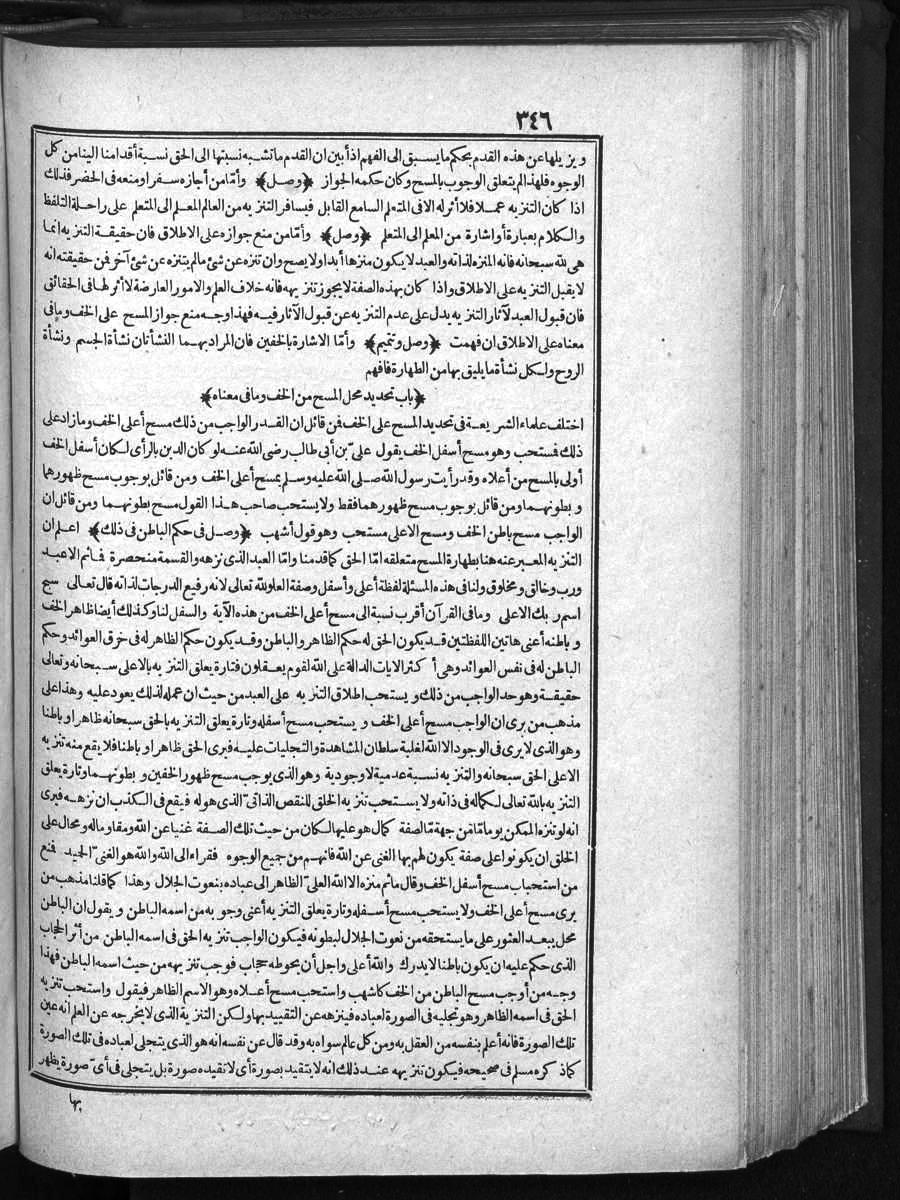 ٣٤٦
ويزيلها عن هذه القدم بحكم ما يسبق الى الفهم اذ أبين ان القدم ما تشبه نسبتها الى الحق نسبة أقدامنا الينا من كل
الوجوه فلهذا لم يتعلق الوجوب بالمسح وكان حكمه الجواز ﴿وصل﴾ وأمّا من أجازه سفرا ومنعه فى الحضر فذلك
اذا كان التنزيه عملا فلا أثر له الا فى المتعلم السامع القابل فيسافر التنزيه من العالم المعلم الى المتعلم على راحلة التلفظ
والكلام بعبارة أو اشارة من المعلم الى المتعلم ﴿وصل﴾ وأمّا من منع جوازه على الاطلاق فان حقيقة التنزيه انما
هى لله سبحانه فانه المنزه لذاته والعبد لا يكون منزها أبدا ولا يصح وان تنزه عن شئ ما لم يتنزه عن شئ آخر فمن حقيقته انه
لا يقبل التنزيه على الاطلاق واذا كان بهذه الصفة لا يجوز تنزيهه فانه خلاف العلم والامور العارضة لا أثر لها فى الحقائق
فان قبول العبد لآثار التنزيه يدل على عدم التنزيه عن قبول الآثار فيه فهذا وجه منع جواز المسح على الخف وما فى
معناه على الاطلاق ان فهمت ﴿وصل وتتميم﴾ وأمّا الاشارة بالخفين فان المراد بهما النشأتان نشأة الجسم ونشأة
الروح ولكل نشأة ما يليق بها من الطهارة فافهم
﴿باب تحديد محل المسح من الخف وما فى معناه﴾
اختلف علماء الشريعة فى تحديد المسح على الخف فمن قائل ان القدر الواجب من ذلك مسح أعلى الخف وما زاد على
ذلك فمستحب وهو مسح أسفل الخف يقول علىّ بن أبى طالب رضى الله عنه لو كان الدين بالرأى لكان أسفل الخف
أولى بالمسح من أعلاه وقد رأيت رسول الله صلى الله عليه وسلم يمسح أعلى الخف ومن قائل بوجوب مسح ظهورهما
وبطونهما ومن قائل بوجوب مسح ظهورهما فقط ولا يستحب صاحب هذا القول مسح بطونهما ومن قائل ان
الواجب مسح باطن الخف ومسح الاعلى مستحب وهو قول أشهب ﴿وصل فى حكم الباطن فى ذلك﴾ اعلم ان
التنزيه المعبر عنه هنا بطهارة المسح متعلقه امّا الحق كما قدمنا وامّا العبد الذى نزهه والقسمة منحصرة فما ثم الا عبد
ورب وخالق ومخلوق ولنا فى هذه المسئلة لفظة أعلى وأسفل وصفة العلو لله تعالى لانه رفيع الدرجات لذاته قال تعالى سبح
اسم ربك الاعلى وما فى القرآن أقرب نسبة الى مسح أعلى الخف من هذه الآية والسفل لنا وكذلك أيضا ظاهر الخف
وباطنه أعنى هاتين اللفظتين قد يكون الحق له حكم الظاهر والباطن وقد يكون حكم الظاهر له فى خرق العوائد وحكم
الباطن له فى نفس العوائد وهى أكثر الايات الدالة على الله لقوم يعقلون فتارة يعلق التنزيه بالاعلى سبحانه وتعالى
حقيقة وهو حد الواجب من ذلك ويستحب اطلاق التنزيه على العبد من حيث ان عمله لذلك يعود عليه وهذا على
مذهب من يرى ان الواجب مسح أعلى الخف ويستحب مسح أسفله وتارة يعلق التنزيه بالحق سبحانه ظاهرا وباطنا
وهو الذى لا يرى فى الوجود الا الله لغلبة سلطان المشاهدة والتجليات عليه فيرى الحق ظاهرا وباطنا فلا يقع منه تنزيه
الاعلى الحق سبحانه والتنزيه نسبة عدمية لا وجودية وهو الذى يوجب مسح ظهور الخفين وبطونهما وتارة يعلق
التنزيه بالله تعالى لكماله فى ذاته ولا يستحب تنزيه الخلق للنقص الذاتىّ الذى هو له فيقع فى الكذب ان نزهه فيرى
انه لو تنزه الممكن يوما مّا من جهة مّا لصفة كمال هو عليها لكان من حيث تلك الصفة غنيا عن الله ومقاوما له ومحال على
الخلق ان يكونوا على صفة يكون لهم بها الغنى عن الله فانهم من جميع الوجوه فقراء الى الله والله هو الغنىّ الحميد فمنع
من استحباب مسح أسفل الخف وقال ما ثم منزه الا الله العلىّ الظاهر الى عباده بنعوت الجلال وهذا كما قلنا مذهب من
يرى مسح أعلى الخف ولا يستحب مسح أسفله وتارة يعلق التنزيه أعنى وجوبه من اسمه الباطن ويقول ان الباطن
محل يبعد العثور على ما يستحقه من نعوت الجلال لبطونه فيكون الواجب تنزيه الحق فى اسمه الباطن من أثر الحجاب
الذى حكم عليه ان يكون باطنا لا يدرك والله أعلى وأجل أن يحوطه حجاب فوجب تنزيهه من حيث اسمه الباطن فهذا
وجه من أوجب مسح الباطن من الخف كاشهب واستحب مسح أعلاه وهو الاسم الظاهر فيقول واستحب تنزيه
الحق فى اسمه الظاهر وهو تجليه فى الصورة لعباده فينزهه عن التقييد بها ولكن التنزيه الذى لا يخرجه عن العلم انه عين
تلك الصورة فانه أعلم بنفسه من العقل به ومن كل عالم سواه به وقد قال عن نفسه انه هو الذى يتجلى لعباده فى تلك الصورة
كما ذكره مسلم فى صحيحه فيكون تنزيهه عند ذلك انه لا يتقيد بصورة أى لا تقيده صورة بل يتجلى فى أىّ صورة يظهر
بها